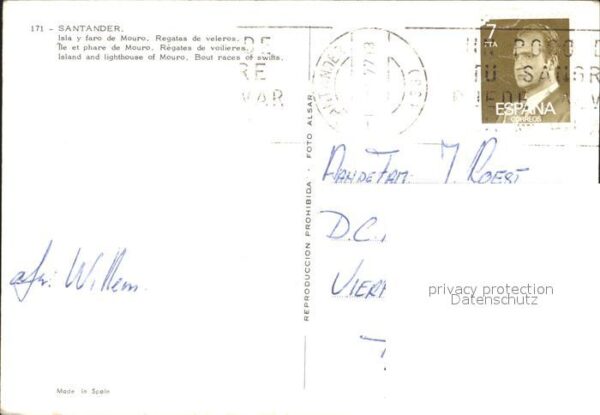 171 - SANTANDER.
Isla y faro de Mouro. Regatas de veleros.
Île et phare de Mouro. Régates de voiliers.
Island and lighthouse of Mouro. Bout races of swifts.
DE
RE
VAR
SANTANDER
UN POCO D
TU SANGR
PUEDE
V
7
PTA
ESPAÑA
CORREOS
REPRODUCCION PROHIBIDA - FOTO ALSAR
AAN DE FAM. J. ROEST
D.C.
VIER
Willem.
privacy protection
Datenschutz
Made in Spain